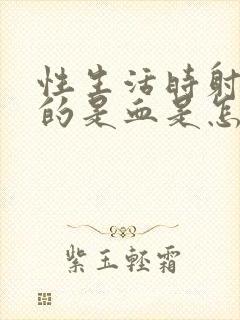 性生活时射
的是血是怎
紫玉轻霜